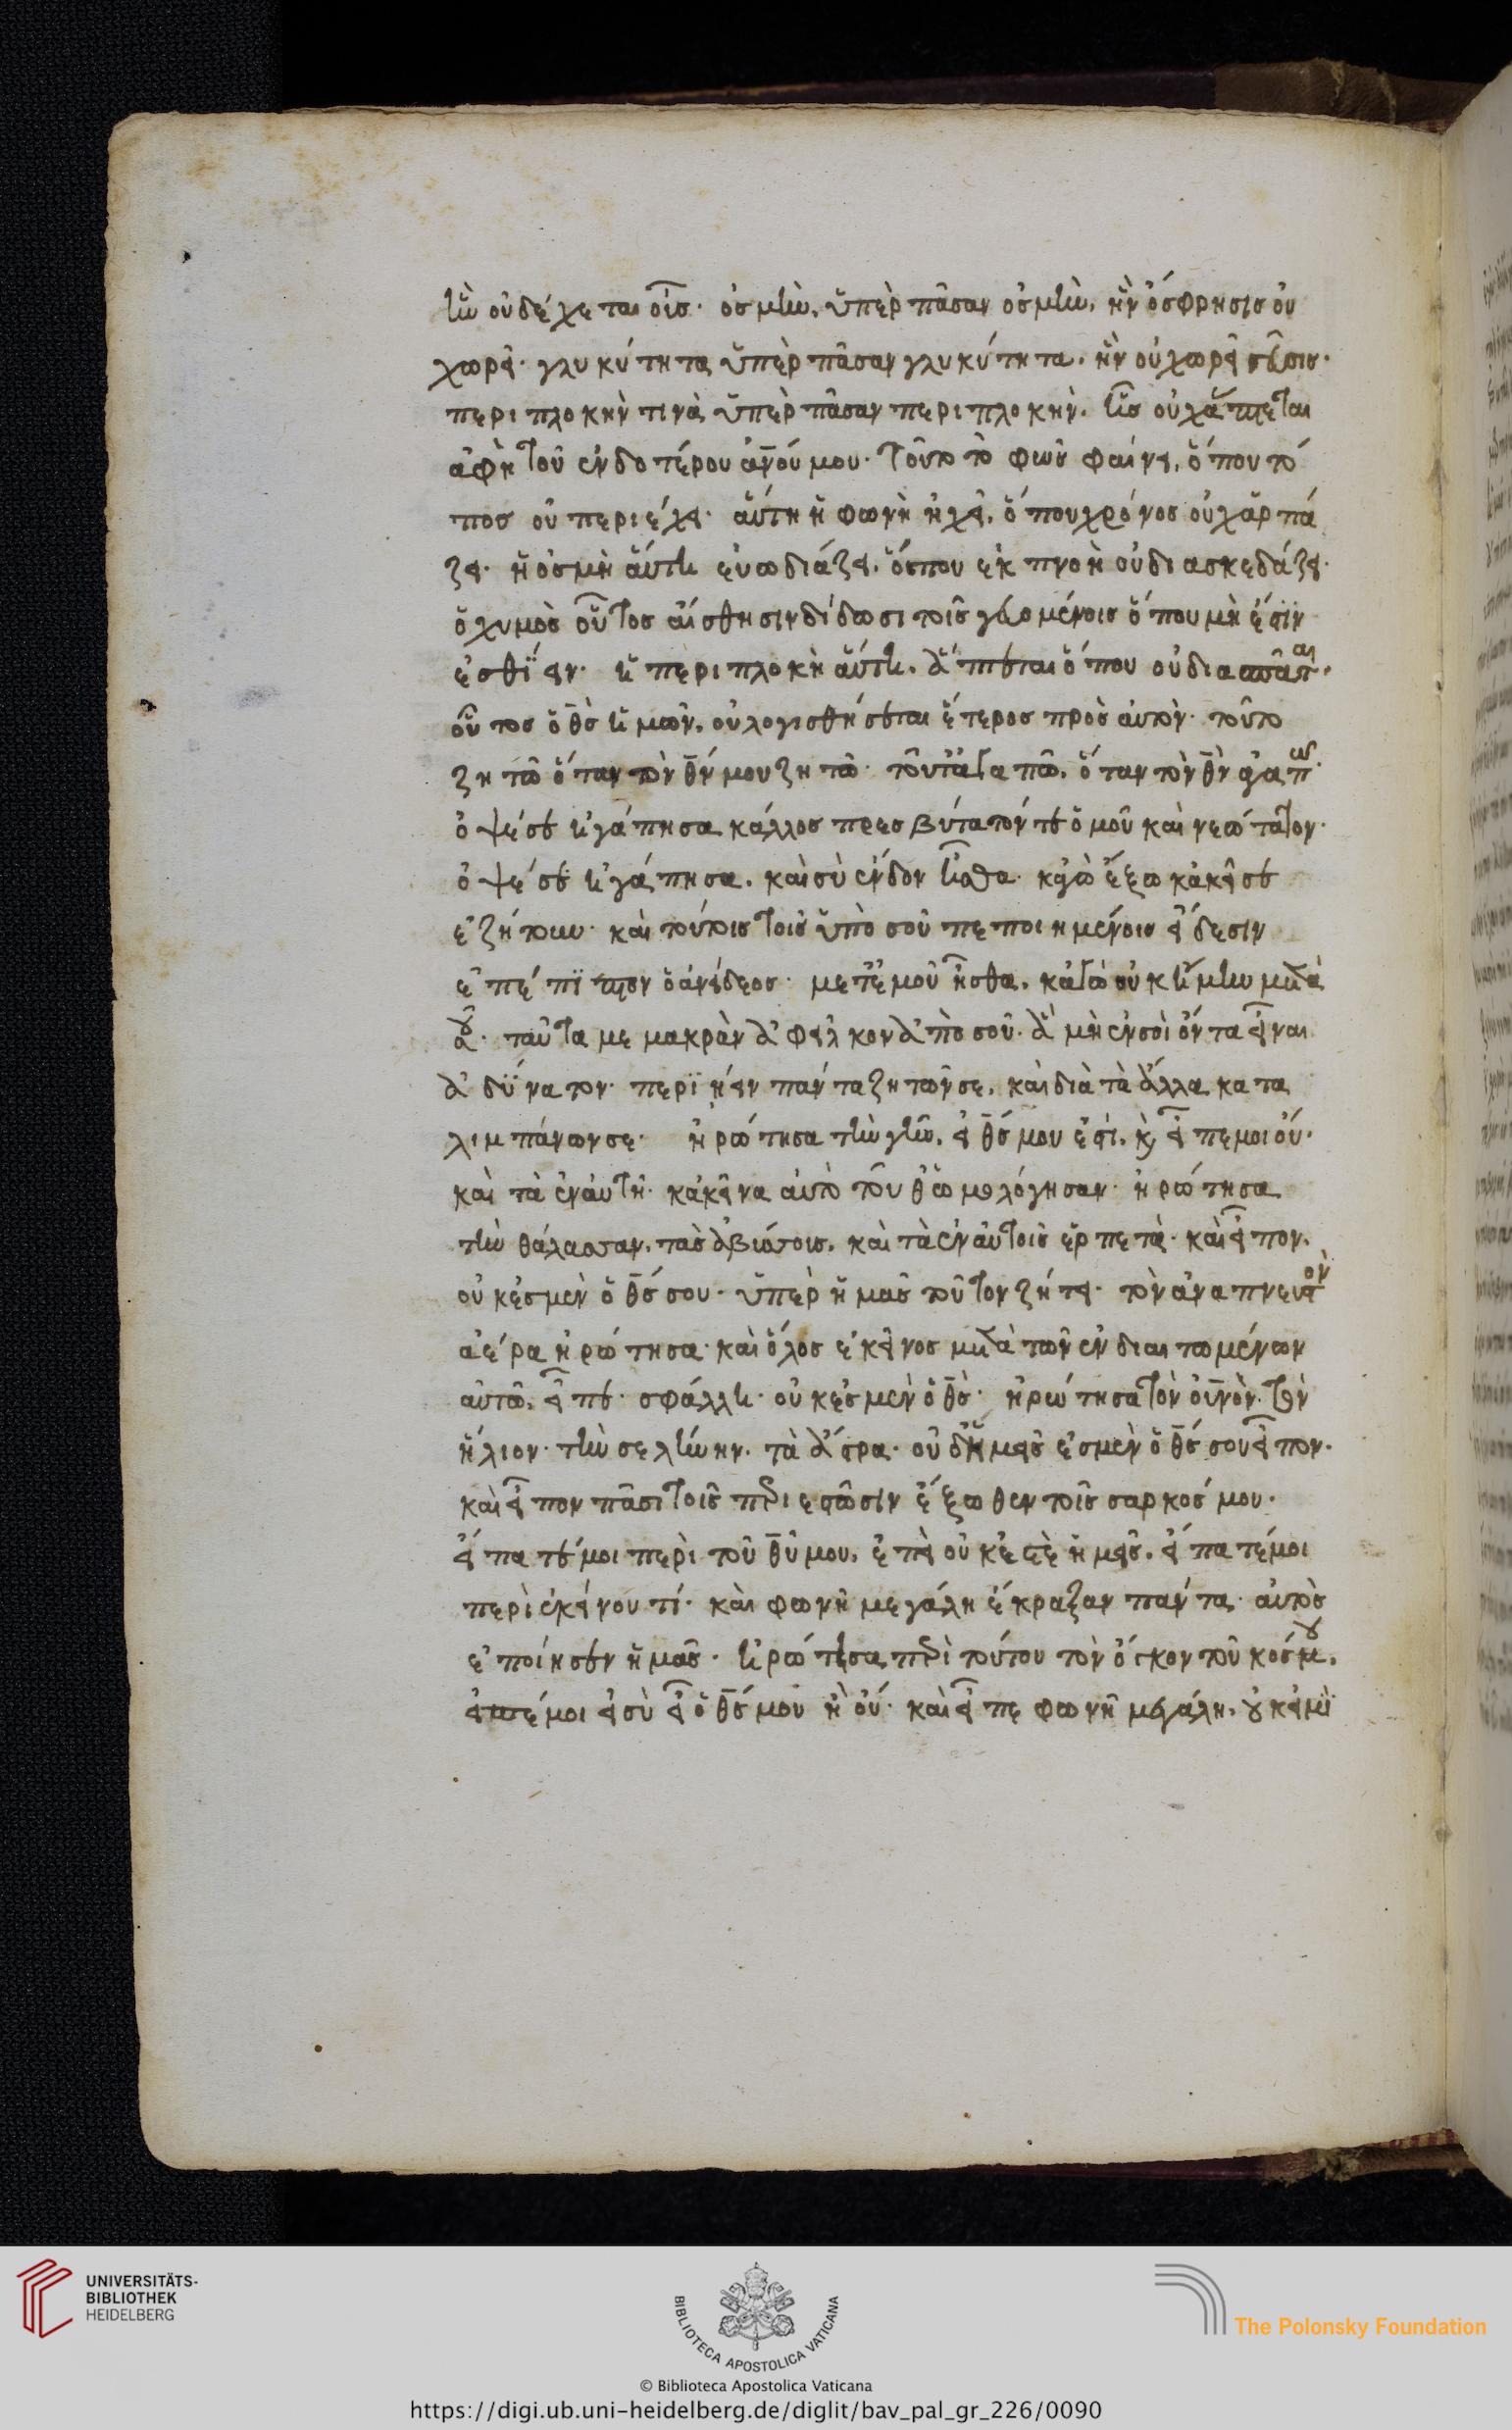 ἣν οὐ δέχεται οὖς· ὀσμὴν, ὑπὲρ πᾶσαν ὀσμὴν, ἣν ὄσφρησις οὐ
χωρεῖ· γλυκύτητα ὑπὲρ πᾶσαν γλυκύτητα, ἣν οὐ χωρεῖ γεῦσις·
περιπλοκὴν τινὰ ὑπὲρ πᾶσαν περιπλοκὴν. ἧς οὐχ ἅπτεται
ἁφὴ τοῦ ἐνδοτέρου ἀν̅ου μου· τοῦτο τὸ φῶς φαίνει, ὅπου τό
πος οὐ περιέχει· αὕτη ἡ φωνὴ ἠχεῖ, ὅπου χρόνος οὐχ ἁρπά
ζει· ἡ ὀσμὴ αὕτη εὐωδιάζει, ὅπου ἐκπνοὴ οὐ διασκεδάζει·
ὁ χυμὸς οὗτος αἴσθησιν δίδωσι τοῖς γευομένοις ὅπου μὴ ἔστιν
ἐσθίειν· ἡ περιπλοκὴ αὕτη, ἅπτεται ὅπου οὐ διασπᾶται.
οὗτος ὁ θ̅ς ἡμῶν, οὐ λογισθήσεται ἕτερος πρὸς αὐτὸν· τοῦτο
ζητῶ ὅταν τὸν θ̅ν μου ζητῶ· τοῦτ' ἀγαπῶ, ὅταν τὸν θ̅ν ἀγαπῶ·
ὀψέ σε ἠγάπησα κάλλος πρεσβύτατόν τε ὁμοῦ καὶ νεώτατον·
ὀψέ σε ἠγάπησα. καὶ σὺ ἔνδον ἦσθα· κἀγὼ ἔξω κἀκεῖ σε
ἐζήτουν· καὶ τούτοις τοῖς ὑπὸ σοῦ πεποιημένοις εἴδεσιν
ἐπέπιπτον ὁ ἀνείδεος· μετ' ἐμοῦ ἦσθα, κἀγὼ οὐκ ἤμην μετὰ
σοῦ· ταῦτά με μακρὰν ἀφεῖλκον ἀπὸ σοῦ· ἃ μὴ ἐν σοὶ ὄντα εἶναι
ἀδύνατον· περιῄειν πάντα ζητῶν σε, καὶ διὰ τὰ ἄλλα κατα
λιμπάνων σε· ἠρώτησα τὴν γῆν, εἰ θ̅ς μου ἐστὶ, καὶ εἶπέ μοι οὔ·
καὶ τὰ ἐν αὐτῇ· κἀκεῖνα αὐτὸ τοῦθ' ὡμολόγησαν· ἠρώτησα
τὴν θάλασσαν, τὰς ἀβύσσους, καὶ τὰ ἐν αὐτοῖς ἑρπετὰ· καὶ εἶπον.
οὐκ ἐσμὲν ὁ θ̅ς σου· ὑπὲρ ἡμᾶς τοῦτον ζήτει· τὸν ἀναπνευστὸν
ἀέρα ἠρώτησα· καὶ ὅλος ἐκεῖνος μετὰ τῶν ἐνδιαιτωμένων
αὐτῷ, εἶπε· σφάλλῃ· οὐκ ἐσμὲν ὁ θ̅ς· ἠρώτησα τὸν οὐ̅νὸν, τὸν
ἥλιον· τὴν σελήνην. τὰ ἄστρα· οὐδ' ἡμεῖς ἐσμὲν ὁ θ̅ς σου εἶπον·
καὶ εἶπον πᾶσι τοῖς περιεστῶσιν ἔξωθεν τοῖς σαρκός μου·
εἴπατέ μοι περὶ τοῦ θ̅υ μου, ἐπεὶ οὐκ ἐστὲ ἡμεῖς. εἴπατέ μοι
περὶ ἐκείνου τί· καὶ φωνῇ μεγάλῃ ἔκραξαν πάντα· αὐτὸς
ἐποίησεν ἡμᾶς· ἠρώτησα περὶ τούτου τὸν ὄγκον τοῦ κόσμου.
εἰπέ μοι εἰ σὺ εἶ ὁ θ̅ς μου ἢ οὔ· καὶ εἶπε φωνῇ μεγάλῃ, οὐκ εἰμὶ
UNIVERSITÄTS-
BIBLIOTHEK
HEIDELBERG
BIBLIOTECA APOSTOLICA VATICANA
The Polonsky Foundation
© Biblioteca Apostolica Vaticana
https://digi.ub.uni-heidelberg.de/diglit/bav_pal_gr_226/0090